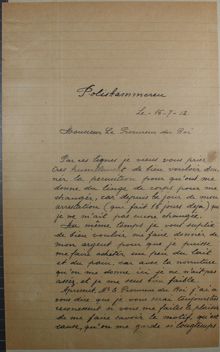 Polistammeren
Le - 15-7-12
Monsieur Le Procureur du Roi
Par ces lignes je viens vous prier
très humblement de bien vouloir don-
ner la permition pour qu'ont me
donne du linge de corps pour me
changer, car depuis le jour de mon
arrestation (que fait 18 jours déjà) que
je ne m'ait pas encore changée.
La même temps je vous suplie
de bien vouloir me faire donner de
mon argent pour que je puisse
me faire acheter un peu du lait
et du pain, car avec la nourriture
qu'on me donne ici je ne n'ait pas
assez, et je me sens bien faible
Mr le Procureur du Roi j'ai à
vous dire que je vous serai toujours
reconnesent si vous me faites le plaisir
de me faire savoir le motif, qui est
cause, qu'on me garde si longtemps